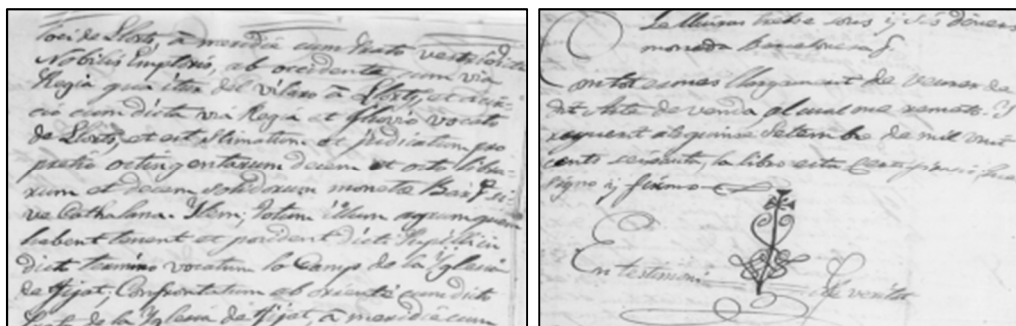 loci de Llorts, à meridie cum Prato
Nobilis Emptoris, ab occidente cum via
Regia qua itur del vilaro à Llorts, et à cir-
cio cum dicta via Regia et
de Llorts, et est stimatum et judicatum pro
pretio octingentarum decem et octo libra-
rum et decem solidorum moneta si-
ve Cathalana. Item; totum illum agrum quem
habent tenent et possident dicti Pupilli in
dicto termino vocatum lo Camp de la Yglesia
de Confrontatum ab oriente cum dicto
de la Yglesia de à meridie cum
Lluiras tretse sous y sis diners
moneda Barcelonesa
Con tot es mes llargament de veurer de
dit Acte de venda al cual me remeto. Y
requirent als quinse Setembre de mil vuit
cents seixanta, la libro esta que
signo y firmo
En testimoni de veritat